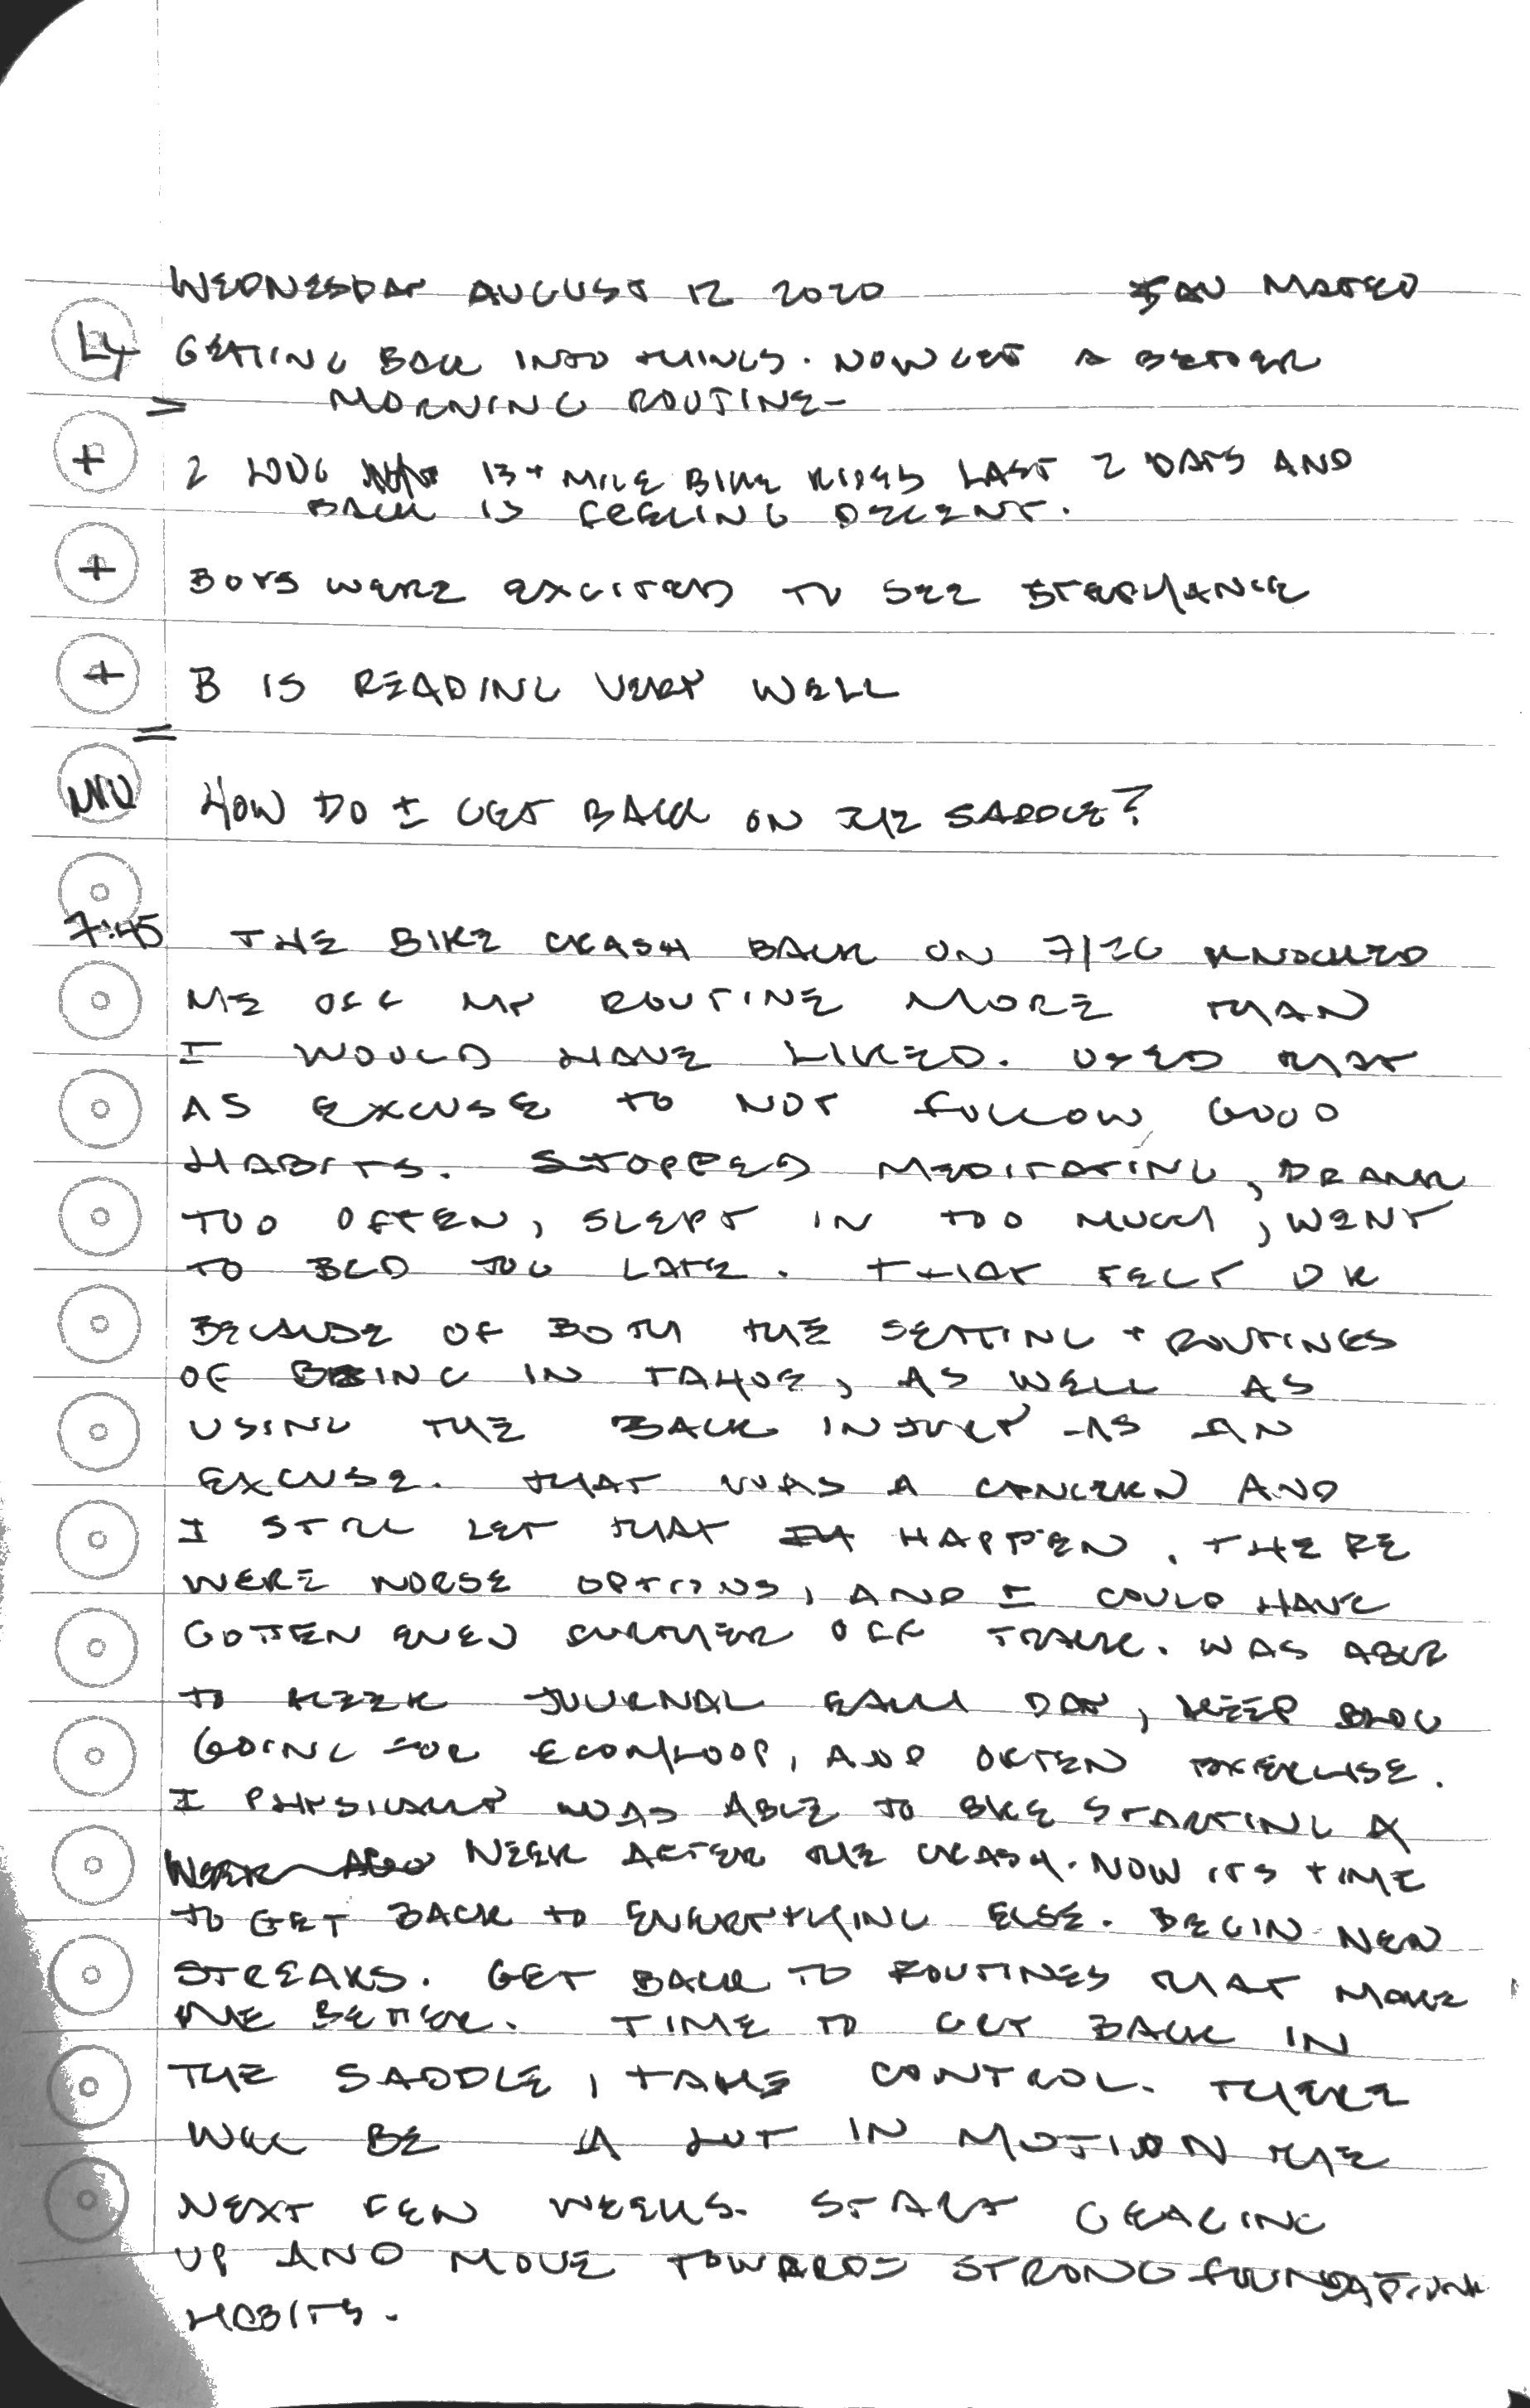 WEDNESDAY AUGUST 12 2020 SAN MATEO
LY GETTING BACK INTO THINGS. NOW GET A BETTER
> MORNING ROUTINE-
+ 2 LONG 13+ MILE BIKE RIDES LAST 2 DAYS AND
BACK IS FEELING DECENT.
+ BOYS WERE EXCITED TO SEE STEPHANIE
+ B IS READING VERY WELL
=
HOW DO I GET BACK ON THE SADDLE?
7:45 THE BIKE CRASH BACK ON 7/26 KNOCKED
ME OFF MY ROUTINE MORE THAN
I WOULD HAVE LIKED. USED THAT
AS EXCUSE TO NOT FOLLOW GOOD
HABITS. STOPPED MEDITATING, DRANK
TOO OFTEN, SLEPT IN TOO MUCH, WENT
TO BED TOO LATE. THAT FELT OK
BECAUSE OF BOTH THE SETTING + ROUTINES
OF BEING IN TAHOE, AS WELL AS
USING THE BACK INJURY AS AN
EXCUSE. THAT WAS A CONCERN AND
I STILL LET THAT HAPPEN. THERE
WERE WORSE OPTIONS, AND I COULD HAVE
GOTTEN EVEN FURTHER OFF TRACK. WAS ABLE
TO KEEP JOURNAL EACH DAY, KEEP BLOG
GOING FOR ECONOLOOP, AND OFTEN EXERCISE.
I PHYSICALLY WAS ABLE TO BIKE STARTING A
WEEK AFTER THE CRASH. NOW ITS TIME
TO GET BACK TO EVERYTHING ELSE. BEGIN NEW
STREAKS. GET BACK TO ROUTINES THAT MAKE
ME BETTER. TIME TO GET BACK IN
THE SADDLE, TAKE CONTROL. THERE
WILL BE A LOT IN MOTION THE
NEXT FEW WEEKS. START GEARING
UP AND MOVE TOWARDS STRONG FOUNDATION
HABITS.